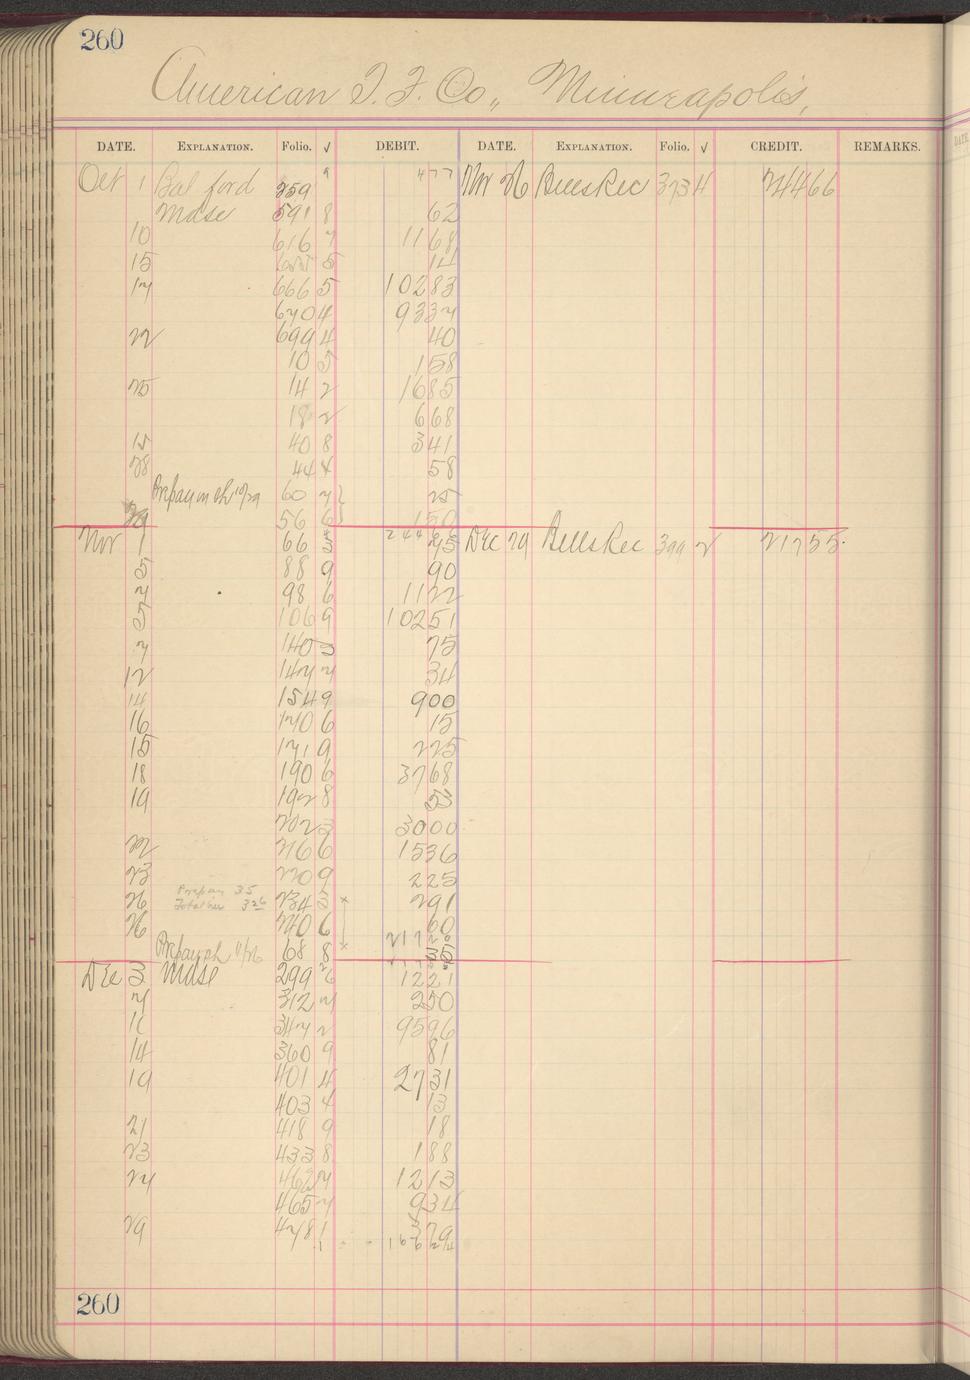 260
American T. F. Co., Minneapolis,
DATE. EXPLANATION. Folio. √ DEBIT. DATE. EXPLANATION. Folio. √ CREDIT. REMARKS.
Oct 1 Bal ford 259 9 477 Nov 26 Bills Rec 373 4 24466
Mdse 591 8 62
10 616 7 1168
15 5 14
17 666 5 10283
670 4 9337
22 699 4 40
10 5 158
25 14 2 1685
18 2 668
15 40 8 341
28 44 4 58
Prepay on ch 10/29 60 7 25
29 56 6 150
24466
Nov 1 66 3 45 Dec 29 Bills Rec 399 2 21755
5 88 9 90
7 98 6 1122
5 106 9 10251
7 140 3 75
12 147 7 34
14 154 9 900
16 170 6 15
15 171 9 225
18 190 6 3768
19 192 8 53
202 3 3000
22 216 6 1536
23 220 9 225
Prepay 35
26 Total inv 326 234 3 291
26 240 6 60
Prepay ch 11/26 68 8 35
Dec 3 Mdse 299 6 1221
7 312 7 250
11 347 2 9596
14 360 9 81
19 401 4 2731
403 4 13
21 418 9 18
23 433 8 188
27 462 7 1213
465 7 934
29 478 1 379
16624
260